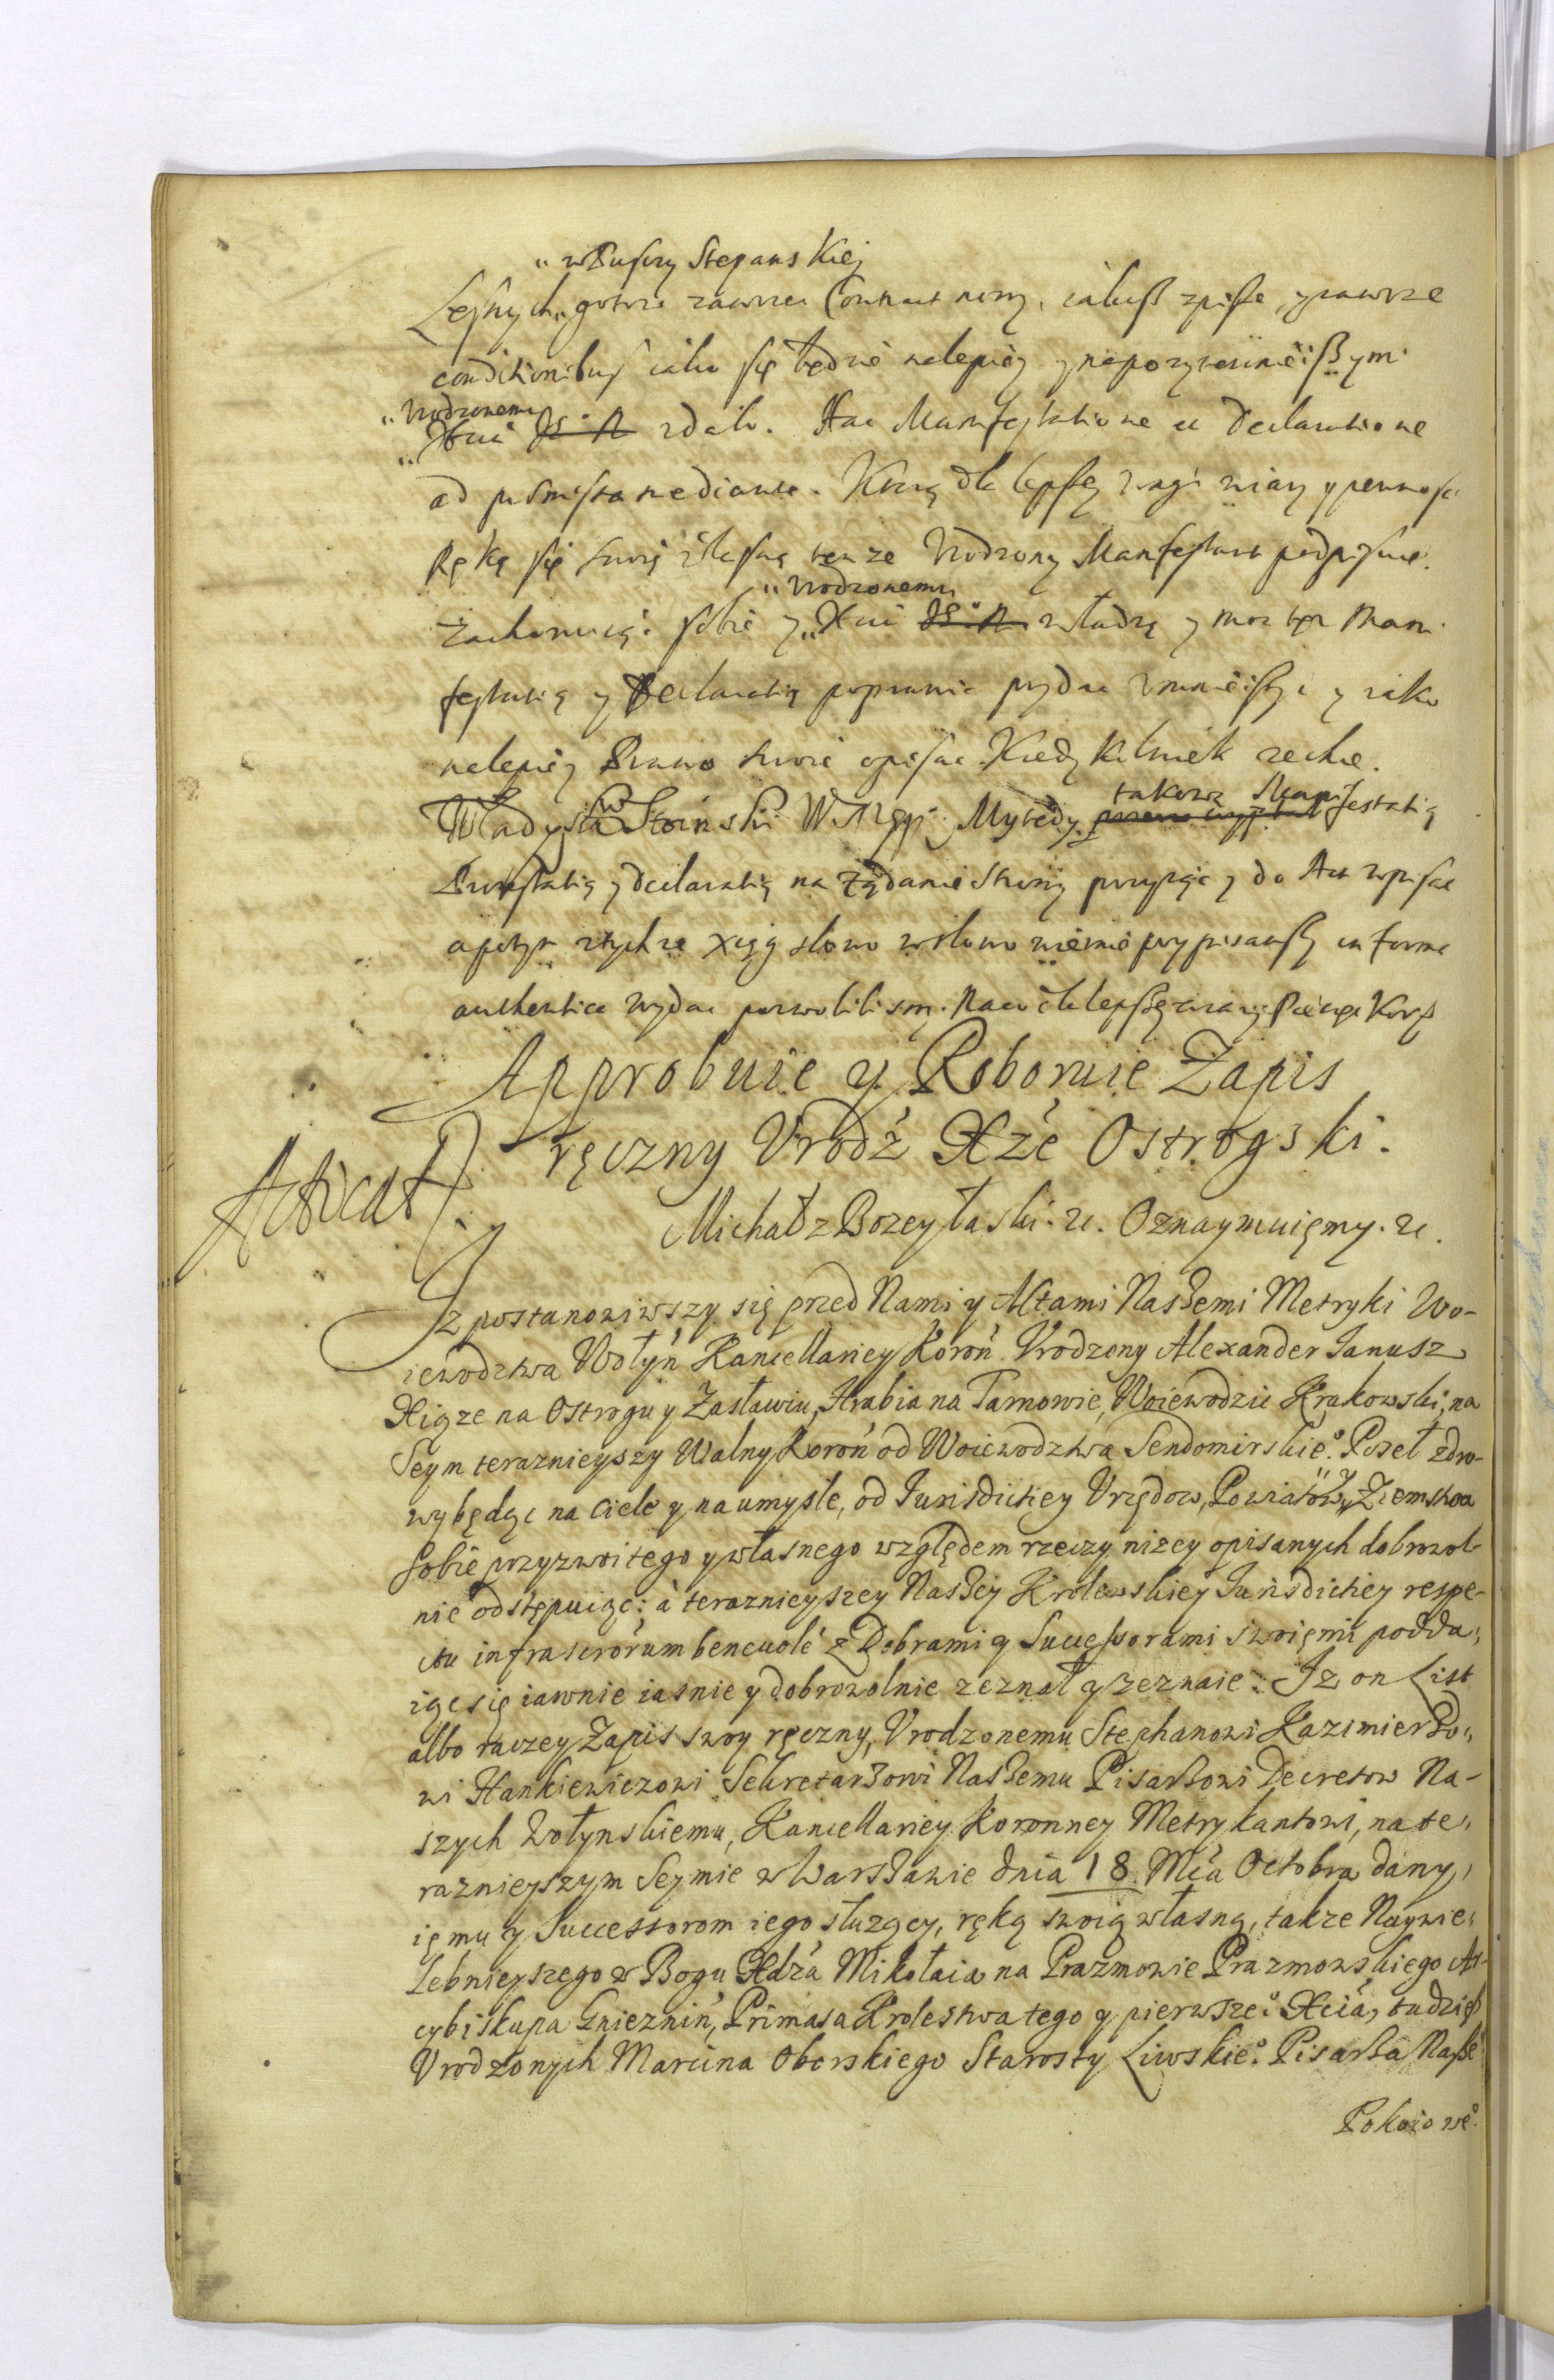 "w Puszczy Stepanskiej
Leśnych, gotowi zawrzeć Contract nowy, iakosz zpisze, y zawrze
conditionibus iako się będzie nalepiey y napozytecznieiszymi
"Urodzonemu
"Xciu zdało. Hac Manifestatione et Declaratione
ad praemissa mediante. Którą dla lepszey wagi wiary y pewnosci
Ręką się swoią własną tenze Urodzony Manifestant podpisuie.
"Urodzonemu
Zachowuiąc sobie y "Xciu władzę y moc tę Mani-
festatią y Declaratią poprawić przydać umnieiszyć y iako
nalepiey Prawo swoie opisać Kiedykolwiek zechce.
Władysław Stoinski W Mppr. My tedy takową Manifestatią
Protestatią y declaratią na żądanie Strony przyiąć y do Act wpisać
a potym z tychze Xiąg słowo w słowo wiernie przypisawszy in forma
authentica wydać pozwolilismy. Naco dla lepszey wiary Pieczęć Kor
Approbuie y Roboruie Zapis
ręczny Urodź Xże Ostrogski.
Acticat
Michał z Bozey łaski. etc. Oznaymuięmy. etc.
Iz postanowiwszy się przed Nami y Aktami Naszemi Metryki Wo-
iewodztwa Wołyń Kancellariey Koroń Vrodzony Alexander Ianusz
Xiąze na Ostrogu y Zasławiu, Hrabia na Tarnowie, Woiewodzic Krakowski, na
Seym teraznieyszy Walny Koroń od Woiewodztwa Sendomirskie° Poseł zdro-
wy będąc na ciele y na umysle, od Iurisdictiey Vrzędow, Powiatow, y Ziemstwa
Sobie przyzwoitego y własnego względem rzeczy nizey opisanych dobrowol-
nie odstępuiąc; à teraznieyszey Naszey Krolewskiey Iurisdictiey respe-
ctu infrascrorum beneuole z Dobrami y Successorami swoięmi podda-
iąc się iawnie iasnie y dobrowolnie zeznał y zeznaie: Iz on List
albo raczey Zapis swoy ręczny, Vrodzonemu Stephanowi Kazimierzo-
wi Hankiewiczowi Sekretarzowi Naszemu Pisarzowi Decretow Na-
szych Wołynskiemu, Kancellariey Koronney Metrykantowi, na te-
raznieyszym Seymie w Warszawie dnia 18 Mća Octobra dany,
ięmu y Successorom iego słuzący, ręką swoią własną, także Naywie-
lebnieyszego w Bogu Xdza Mikołaia na Prazmowie Prazmowskiego Ar-
cybiskupa Gniezniń, Primasa Krolestwa tego y pierwsze° Xcia, tudziesz
Vrodzonych Marcina Oborskiego Starosty Liwskie° Pisarza Nasze°
Pokoiowe°